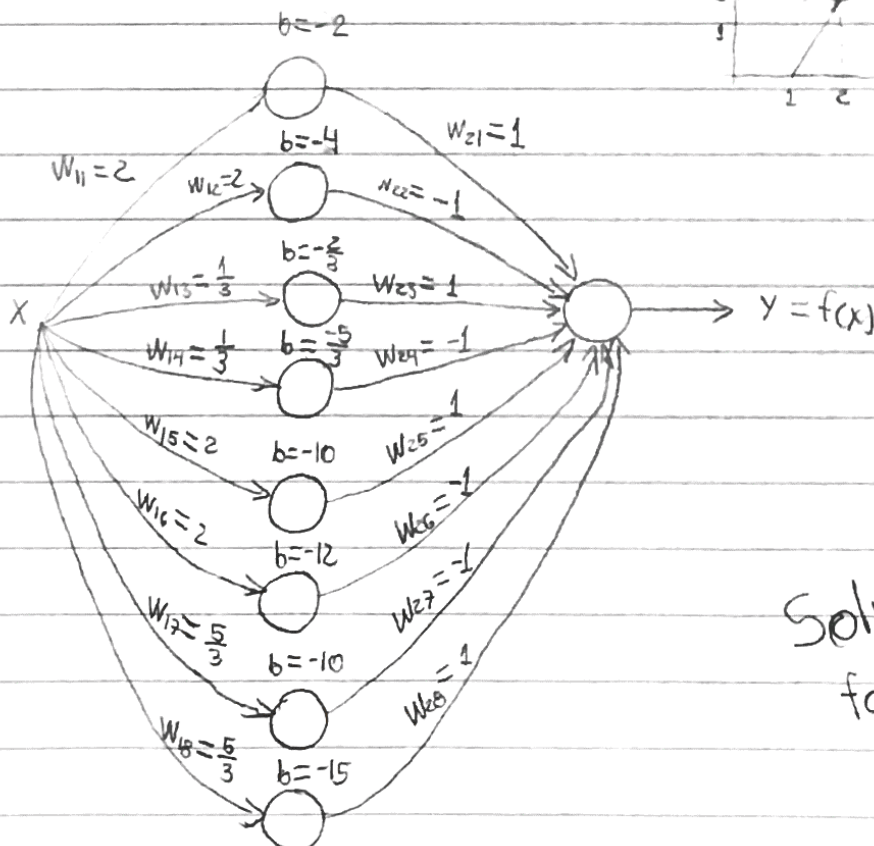 1
1 2
b=-2
W₁₁=2
W₂₁=1
b=-4
W₁₂=2
W₂₂=-1
b=-2/3
W₁₃=1/3
W₂₃=1
X
Y=f(x)
b=-5/3
W₁₄=1/3
W₂₄=-1
W₁₅=2
b=-10
W₂₅=1
W₁₆=2
b=-12
W₂₆=-1
W₁₇=5/3
b=-10
W₂₇=-1
W₁₈=5/3
b=-15
W₂₈=1